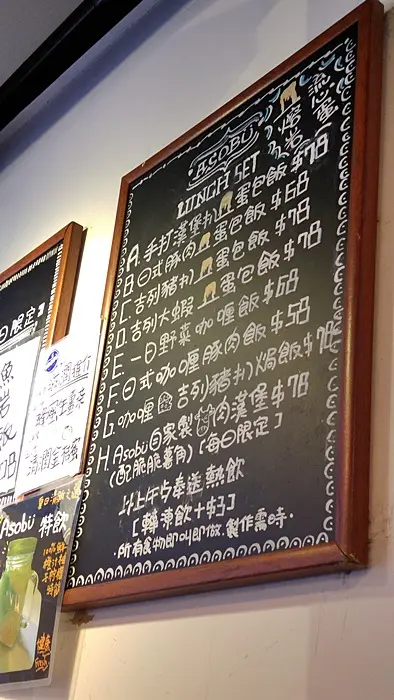 ASOBÜ
流心蛋
LUNCH SET
A. 手打漢堡扒 蛋包飯 $78
B. 日式豚肉 蛋包飯 $68
C. 吉列豬扒 蛋包飯 $78
D. 吉列大蝦 蛋包飯 $78
E. 一日野菜咖喱飯 $68
F. 日式咖喱豚肉飯 $58
G. 咖喱 吉列豬扒焗飯 $78
H. Asobü自家製 肉漢堡 $78
(配脆脆薯角) [每日限定]
以上午巿奉送熱飲
[轉凍飲+$3]
·所有食物即叫即做. 製作需時·
日限定
魚
岩
飯
Asobü 特飲